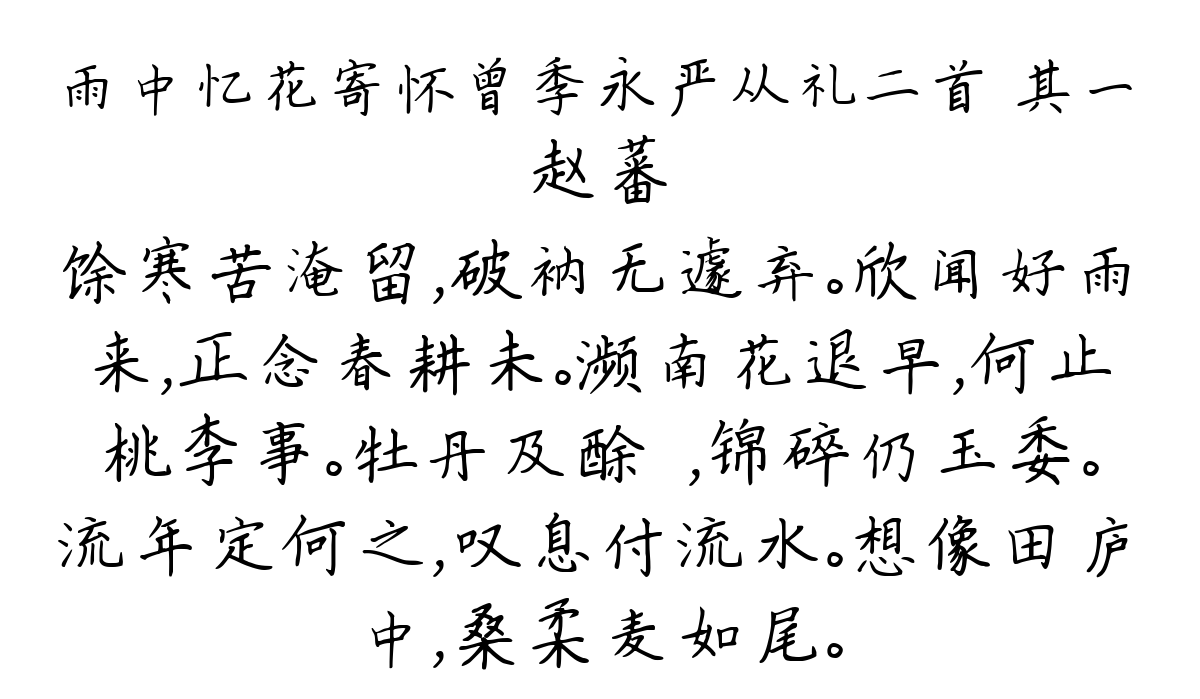 雨中忆花寄怀曾季永严从礼二首 其一
赵蕃
馀寒苦淹留,破衲无遽弃。欣闻好雨
来,正念春耕未。濒南花退早,何止
桃李事。牡丹及酴 ,锦碎仍玉委。
流年定何之,叹息付流水。想像田庐
中,桑柔麦如尾。